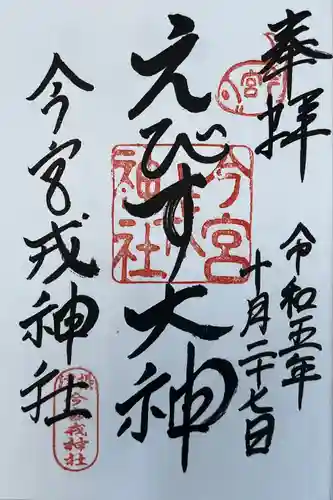 奉拝
令和五年
十月二十七日
えびす大神
今宮戎神社
今宮
戎
神社